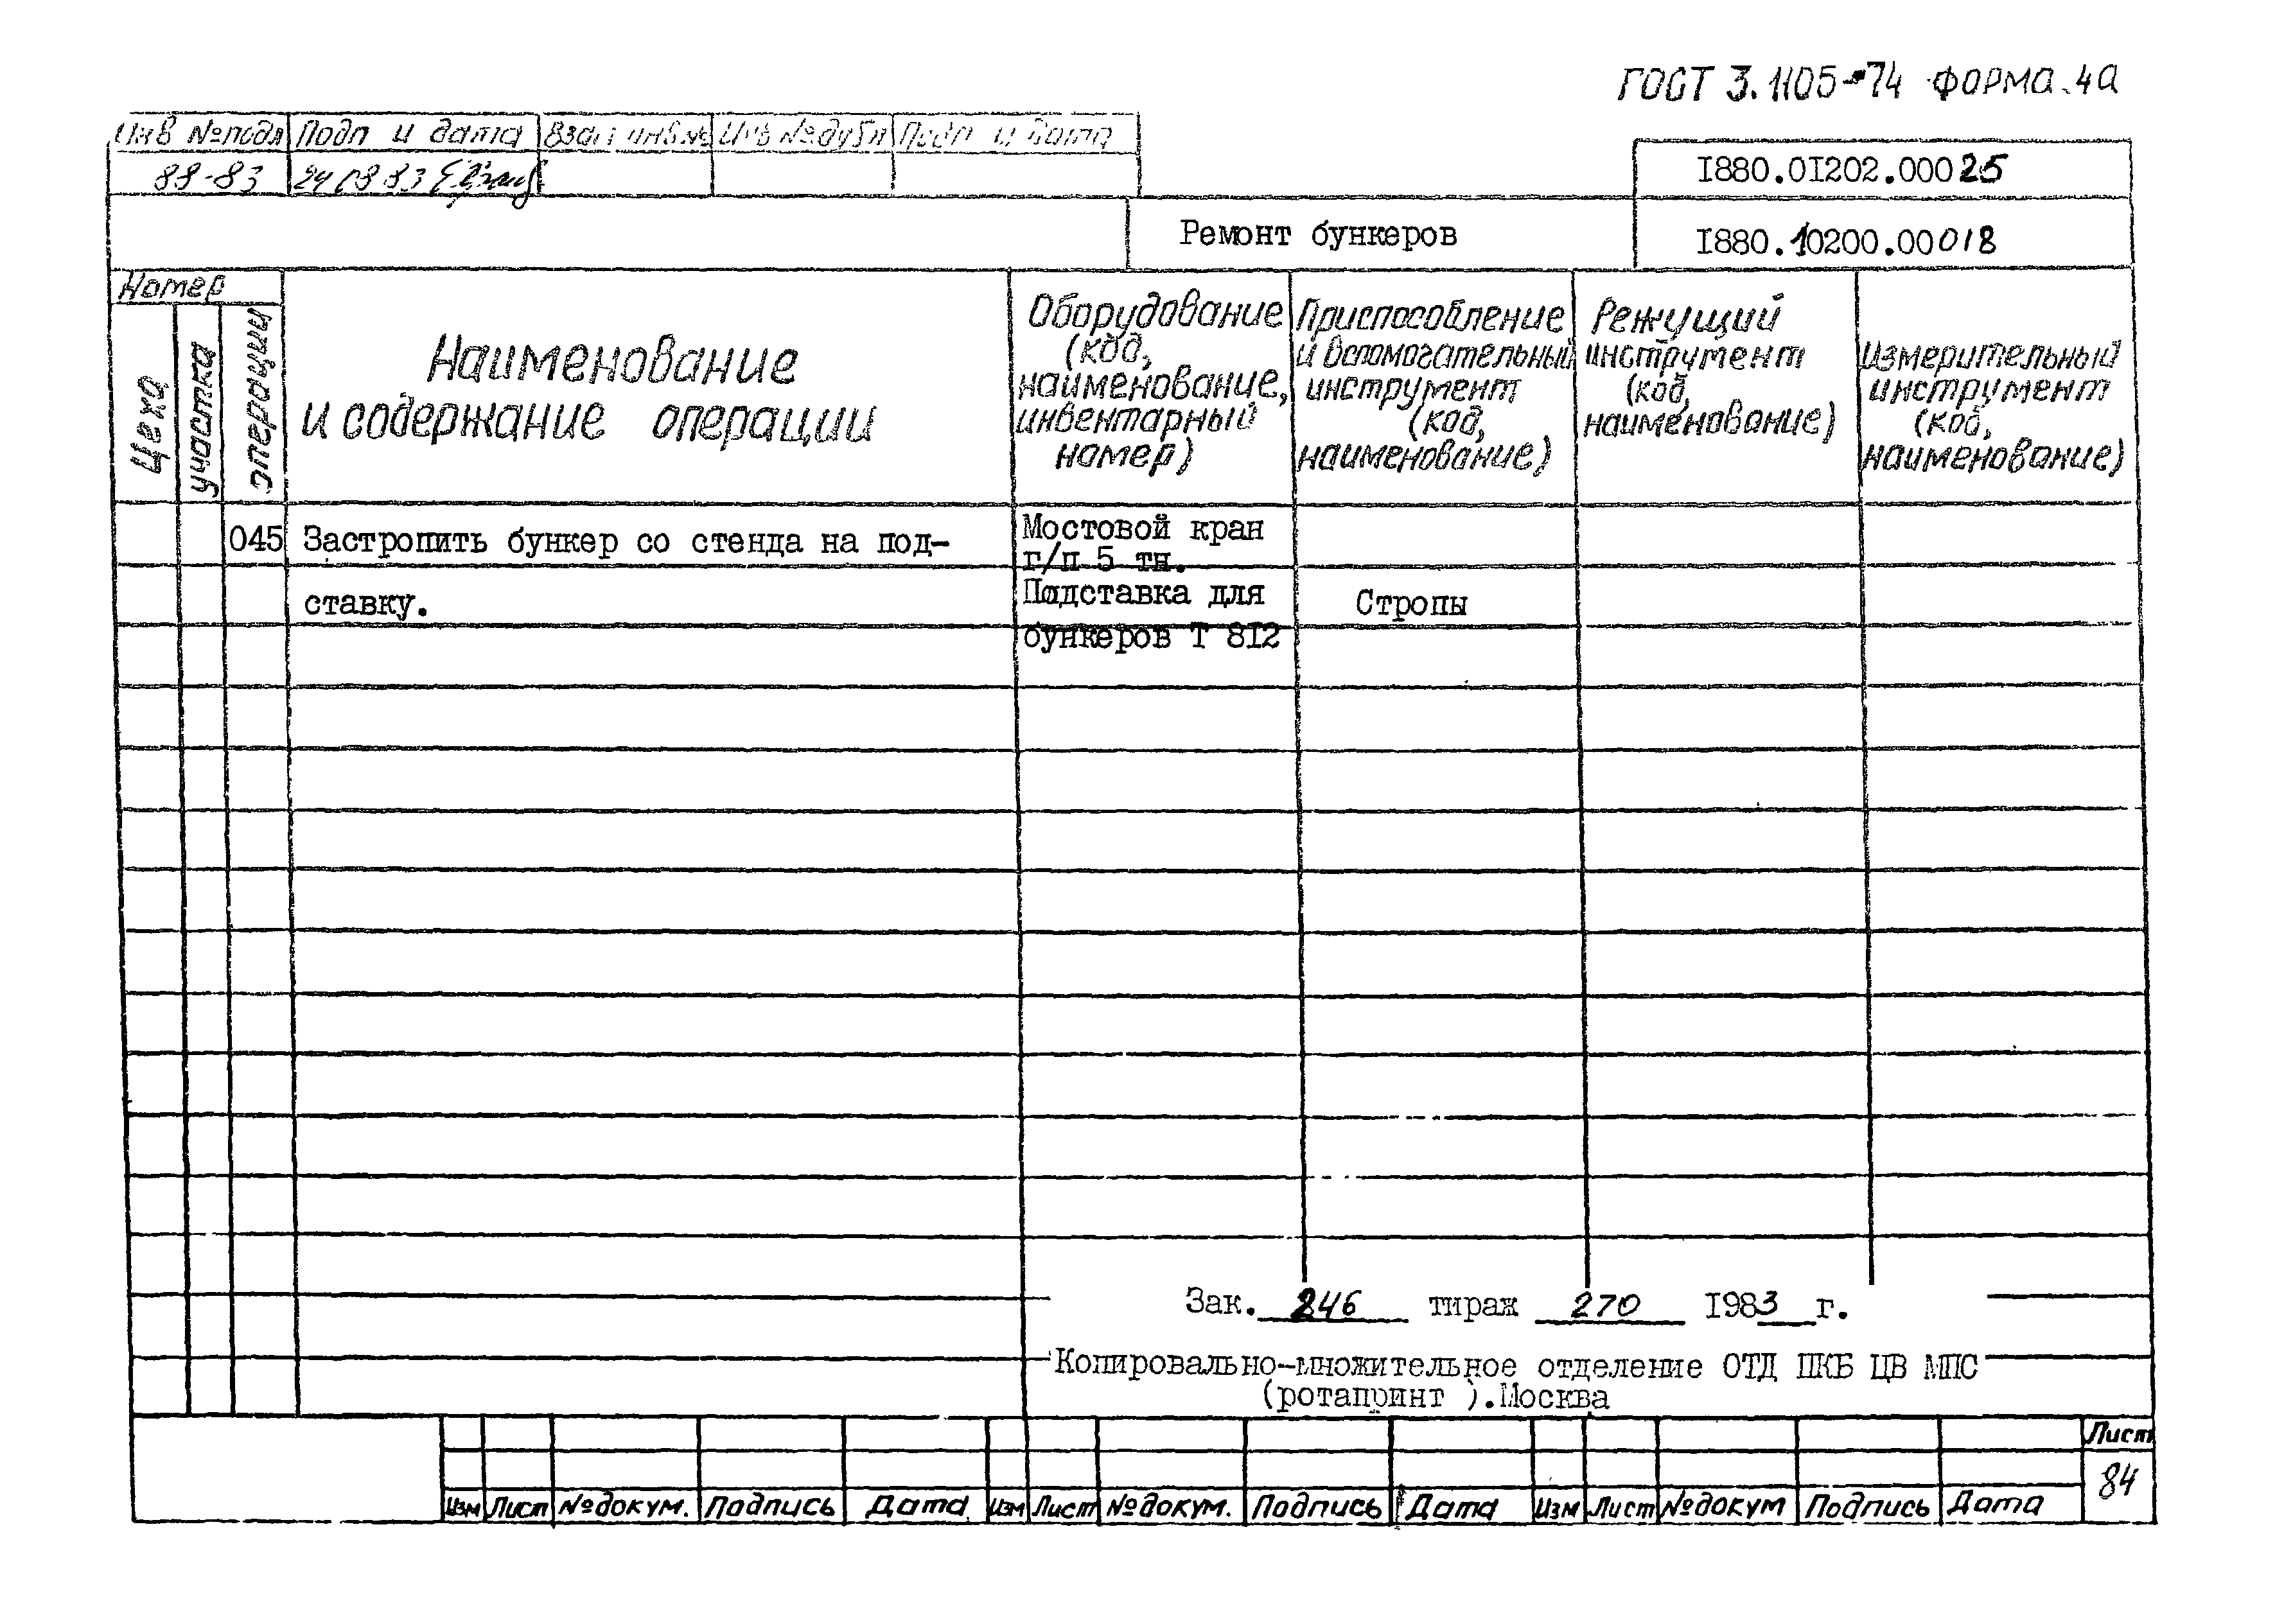 ГОСТ 3.1105-74 ФОРМА.4а
Инв №подл Подп и дата Взам инв.№ Инв №дубл Подп и дата
88-83 24 08 83
I880.0I202.00025
Ремонт бункеров
I880.10200.00018
Номер
Цеха
участка
операции
Наименование
и содержание операции
Оборудование
(код,
наименование,
инвентарный
номер)
Приспособление
и вспомогательный
инструмент
(код,
наименование)
Режущий
инструмент
(код,
наименование)
Измерительный
инструмент
(код,
наименование)
045 Застропить бункер со стенда на под-
ставку.
Мостовой кран
г/п 5 тн.
Подставка для
бункеров Т 8I2
Стропы
Зак. 246 тираж 270 I983 г.
Копировально-множительное отделение ОТД ПКБ ЦВ МПС
(ротапринт ).Москва
Лист
84
Изм Лист №докум. Подпись Дата Изм Лист №докум. Подпись Дата Изм Лист №докум Подпись Дата